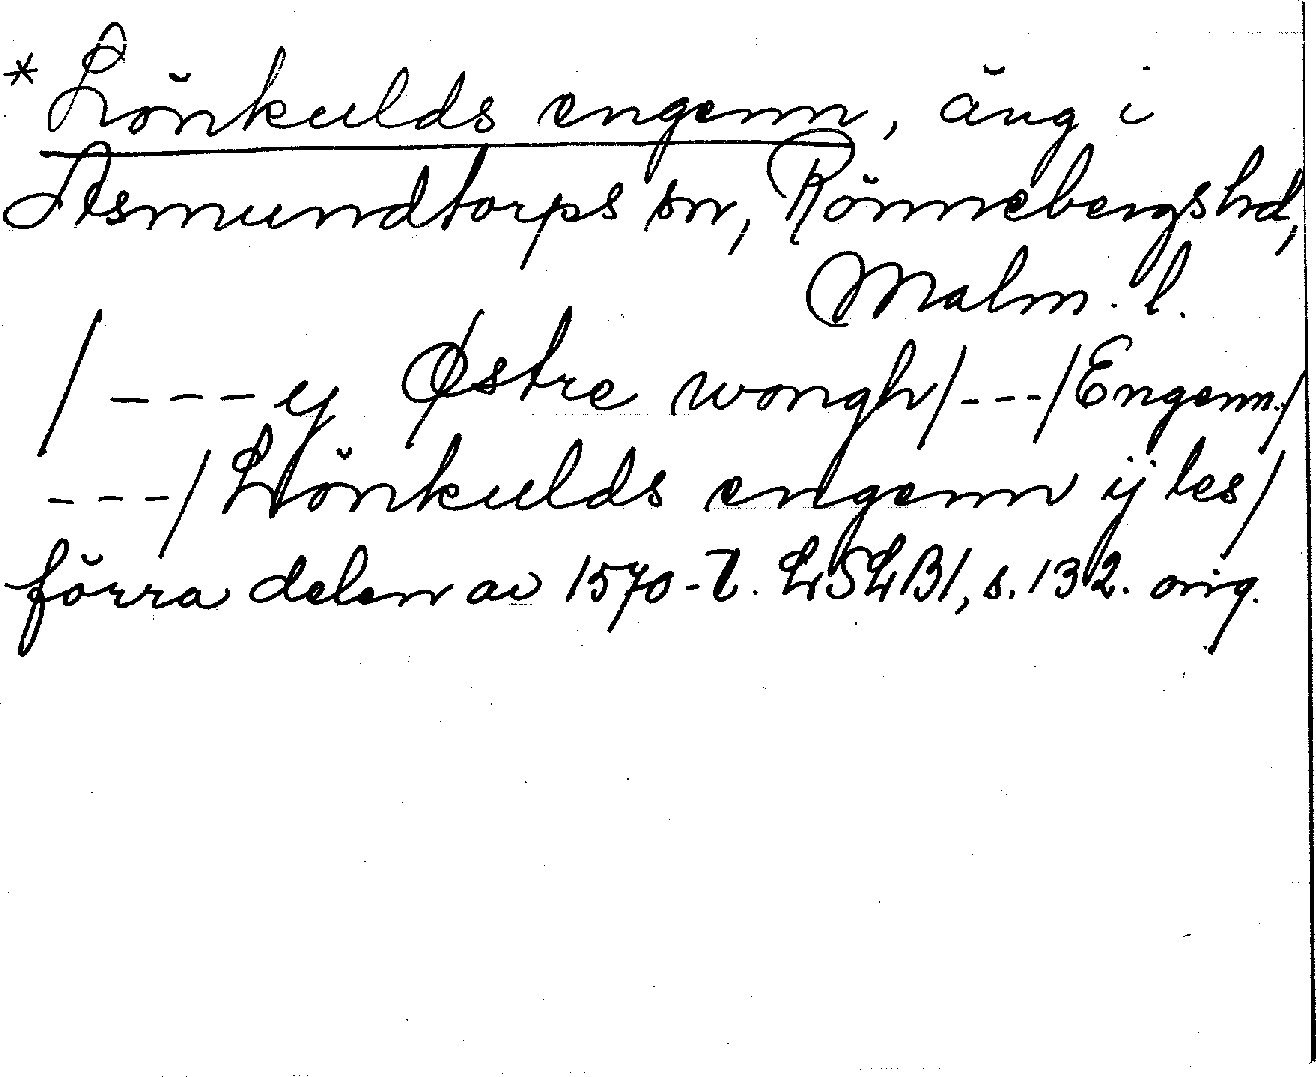 * Lönkulds engenn, äng i
Asmundtorps sn, Rönnebergs hd,
Malm. l.
/ --- y Østre wongh/---/Engenn./
---/Lönkulds engenn ij les/
förra delen av 1570-t. LSLB1, s. 132. orig.